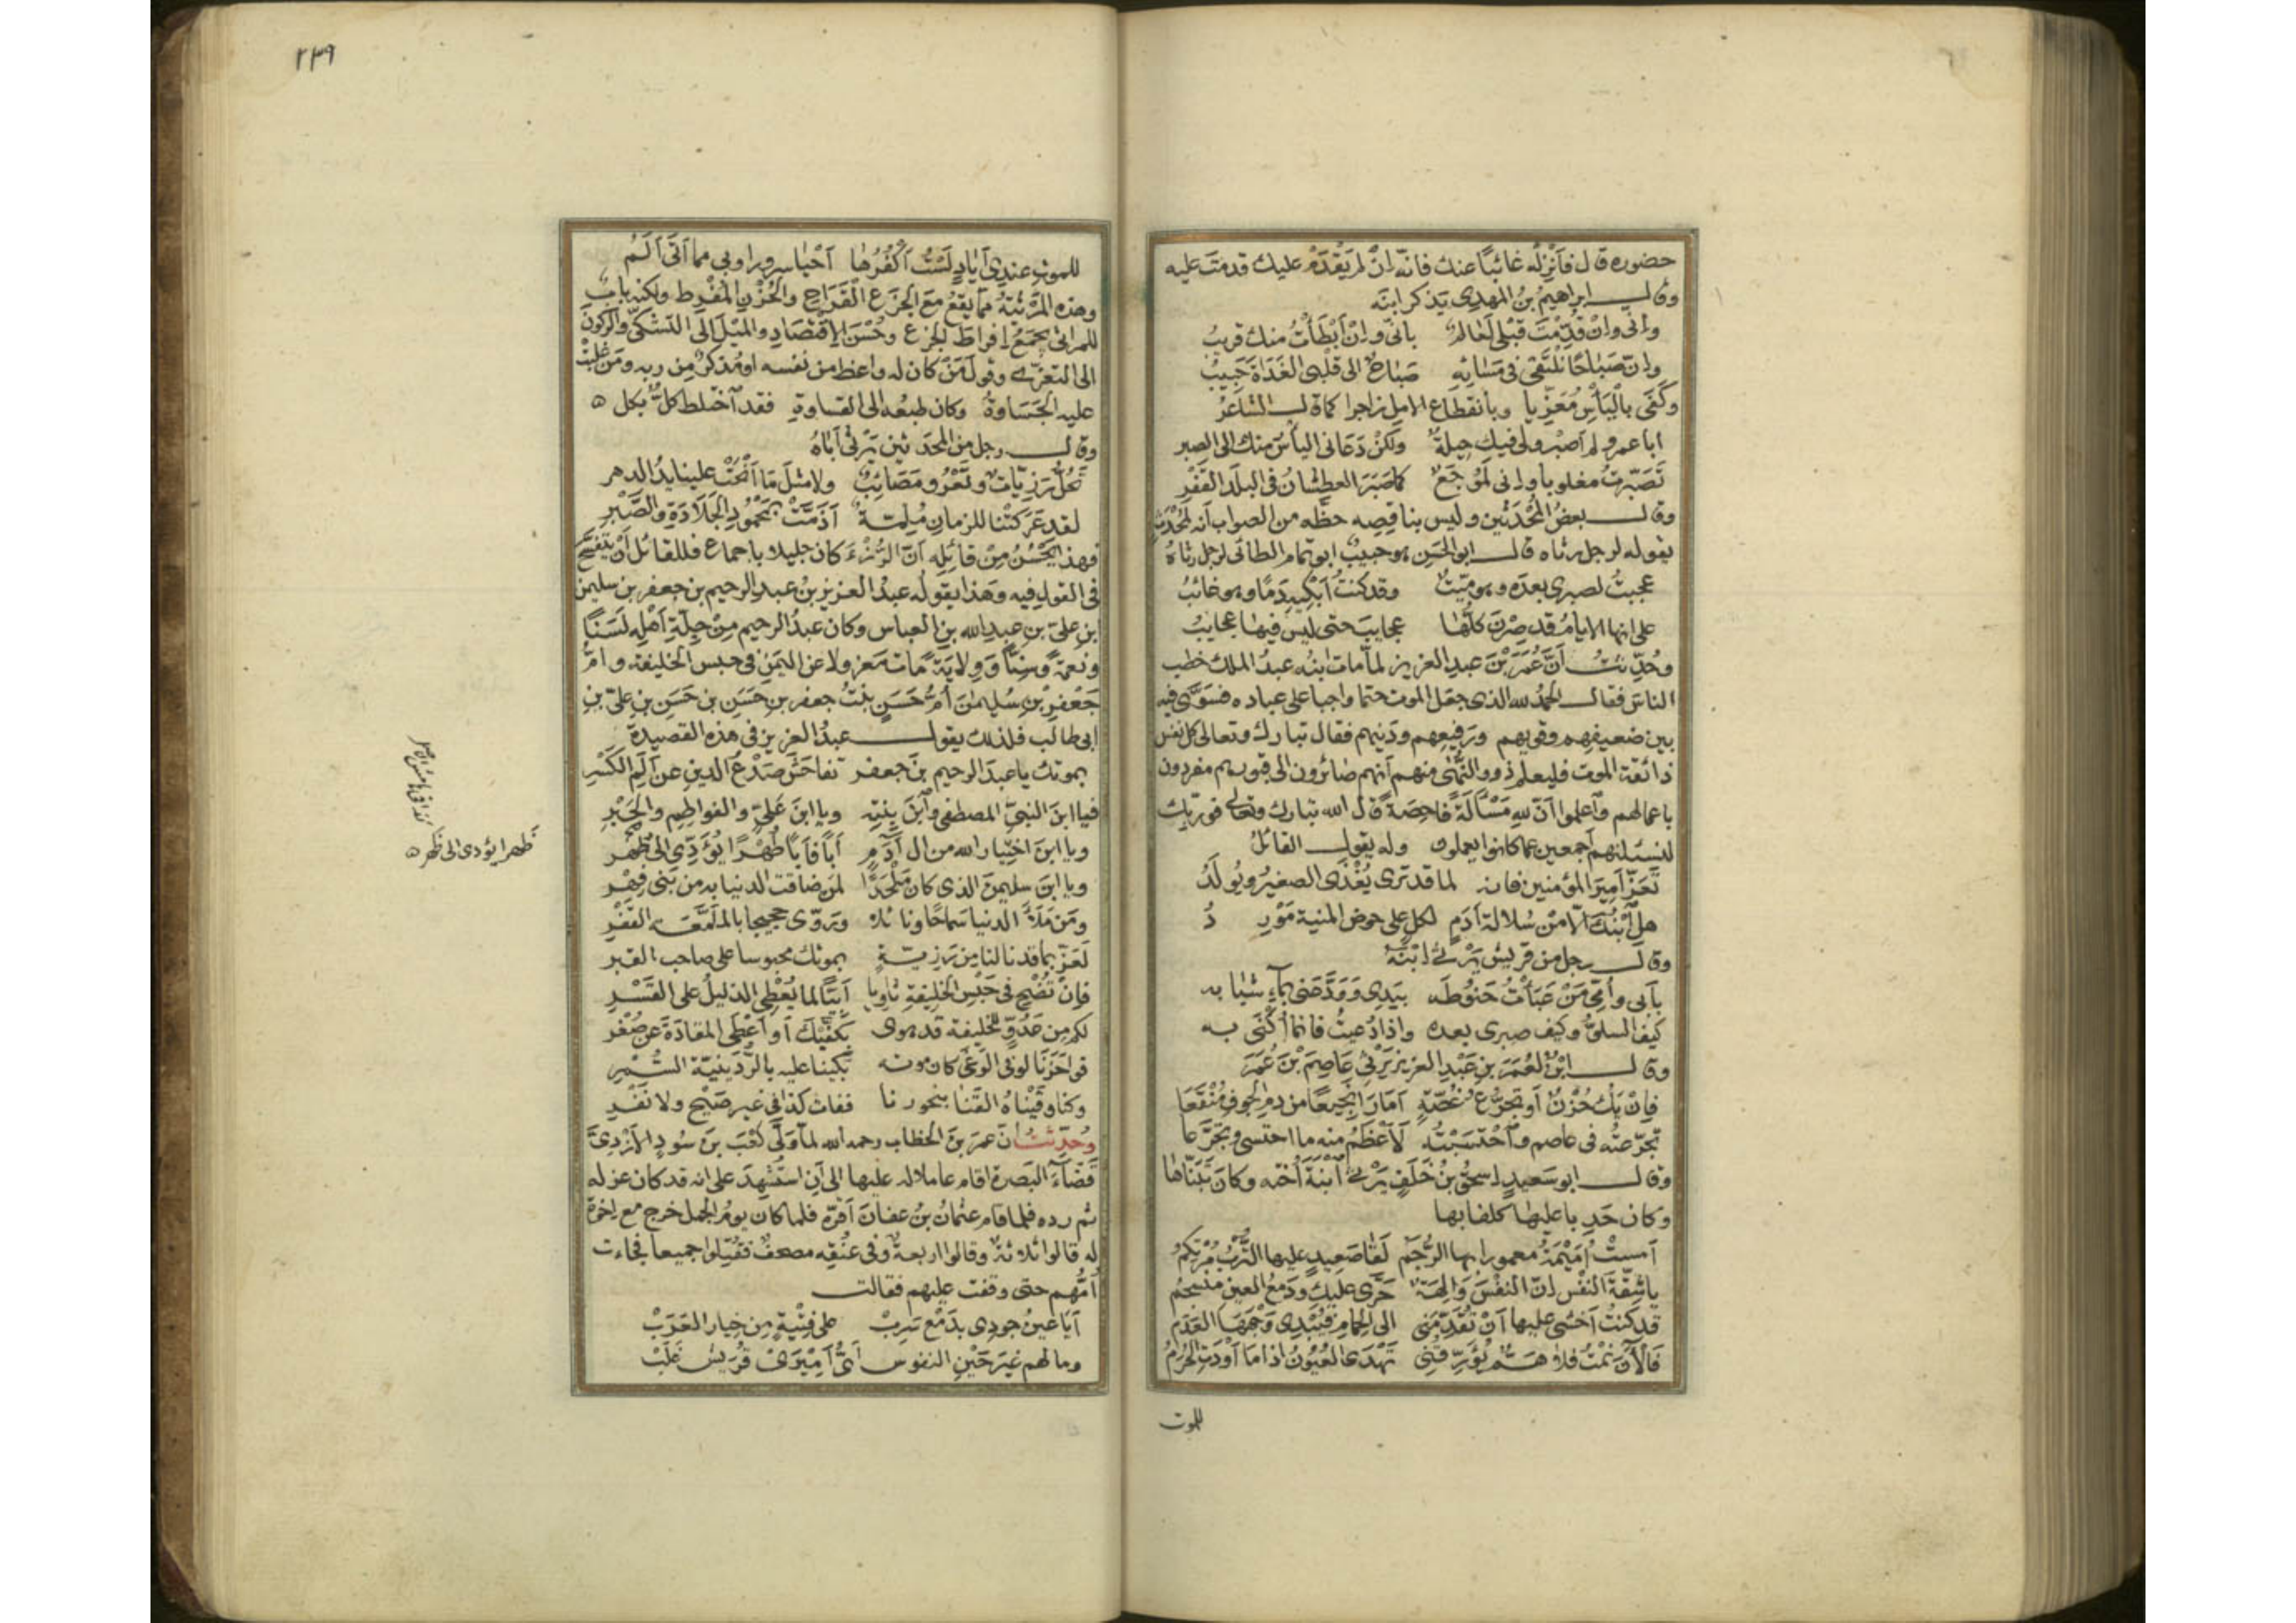 حضوره قال فأنزله غائبا عنك فانه ان لم يقدم عليك قدمت عليه
وقال ابراهيم بن المهدى يذكر ابنه
وانى وان قدمت قبلى لعالم بانى وان أبطأت منك قريب
وان صباحا نلتقى فى مسائه صباح الى قلبى الغداة حبيب
وكفى باليأس معزيا وبانقطاع الامل زاجرا كما قال الشاعر
ابا عمرو لم اصبر ولى فيك حيلة ولكن دعانى اليأس منك الى الصبر
تصبرت مغلوبا وانى لموجع كما صبر العطشان فى البلد القفر
وقال بعض المحدثين وليس بناقصه حظه من الصواب أنه محدث
يقوله لرجل رثاه قال ابو الحسن هو حبيب ابو تمام الطائى لرجل رثاه
عجبت لصبرى بعده وهو ميت وقد كنت أبكيه دما وهو غائب
على انها الايام قد صرن كلها عجايب حتى ليس فيها عجايب
وحدثت أن عمر بن عبد العزيز لما مات ابنه عبد الملك خطب
الناس فقال الحمد لله الذى جعل الموت حتما واجبا على عباده فسوى فيه
بين ضعيفهم وقويهم ورفيعهم ودنيهم فقال تبارك وتعالى كل نفس
ذائقة الموت فليعلم ذوو النهى منهم أنهم صائرون الى قبورهم مفردون
باعمالهم واعلموا أن لله مسألة فاحصة قال الله تبارك وتعالى فوربك
لنسئلنهم أجمعين عما كانوا يعملون وله يقول القائل
تعز أمير المؤمنين فانه لما قد ترى يغذى الصغير ويولد
هل ابنك الا من سلالة آدم لكل على حوض المنية مورد
وقال رجل من قريش يرثى ابنه
بأبى وأمى من عبأت حنوطه بيدى وودعنى بماء شبابه
كيف السلو وكيف صبرى بعده واذا دعيت فانما أكنى به
وقال ابن لعمر بن عبد العزيز يرثى عاصم بن عمر
فان يك حزن أو تجرع غصة أمارا نجيعا من دم الجوف منقعا
تجرعته فى عاصم واحتسبته لأعظم منه ما احتسى وتجرعا
وقال ابو سعيد اسحق بن خلف يرثى ابنة أخته وكان تبناها
وكان حدبا عليها كلفا بها
أمست أميمة معمورا بها الرجم لقا صعيد عليها الترب مرتكم
يا شقة النفس ان النفس والهة حرى عليك ودمع العين منسجم
قد كنت أخشى عليها أن تقدمنى الى الحمام فيبدى وجهها العدم
فالآن نمت فلا هم يؤرقنى تهدى العيون اذا ما أودت الحرم
للموت
٢٣٩
للموت عندى أياد لست أكفرها أحيا سرورا وبى مما أتى ألم
وهذه المرثية مما يقع مع الجزع القراح والحزن المفرط ولكنه باب
للمراثى يجمع افراط الجزع وحسن الاقتصاد والميل الى التشكى والركون
الى التعزى وقول من كان له واعظ من نفسه او مذكر من ربه ومن غلبت
عليه الجساوة وكان طبعه الى القساوة فقد اختلط كل بكل ه
وقال رجل من المحدثين يرثى أباه
تحل رزيات وتعرو مصائب ولا مثل ما أنحت علينا يد الدهر
لقد عركتنا للزمان ملمة أذمت بمحمود الجلادة والصبر
فهذا يحسن من قائله أن الرزء كان جليلا باجماع فللقائل أن يتفسح
فى القول فيه وهذا يقوله عبد العزيز بن عبد الرحيم بن جعفر بن سليمن
ابن على بن عبد الله بن العباس وكان عبد الرحيم من جلة أهله لسنا
ونعمة وسنا وولاية مات معزولا عن اليمن فى حبس الخليفة وام
جعفر بن سليمان أم حسن بنت جعفر بن حسن بن حسن بن على بن
ابى طالب فلذلك يقول عبد العزيز فى هذه القصيدة
بموتك يا عبد الرحيم بن جعفر تفاحش صدع الدين عن ألم الكسر
فيا ابن النبى المصطفى وابن بنته ويا ابن على والفواطم والحبر
ويا ابن اختيار الله من ال آدم أبا فأبا طهرا يؤدى الى طهر
ويا ابن سليمن الذى كان ملجدا لمن ضاقت الدنيا به من بنى فهر
ومن ملأ الدنيا سماحا ونائلا وروى حجيجا بالملمعة القفر
لعز بما قد نالنا من رزية بموتك محبوسا على صاحب القبر
فان تضح فى حبس الخليفة ثاويا أبيا لما يعطى الذليل على القسر
لكم من عدو للخليفة قد هوى بكفيك أو أعطى المقادة عن صغر
فواحزنا لو فى الوغى كان موته بكينا عليه بالردينية السمر
وكنا وقيناه القنا بنحورنا ففات كذا فى غير صبح ولا نفر
وحدثت ان عمر بن الخطاب رحمه الله لما ولى كعب بن سود الازدى
قضاء البصرة اقام عاملا له عليها الى أن استشهد على انه قد كان عزله
ثم رده فلما قام عثمان بن عفان أقره فلما كان يوم الجمل خرج مع اخوة
له قالوا ثلاثة وقالوا اربعة وفى عنقه مصحف فقتلوا جميعا فجاءت
أمهم حتى وقفت عليهم فقالت
أيا عين جودى بدمع سرب على فتية من خيار العرب
وما لهم غير حين النفوس أى أميرى قريش غلب
ظهرا يؤدى الى ظهر ه